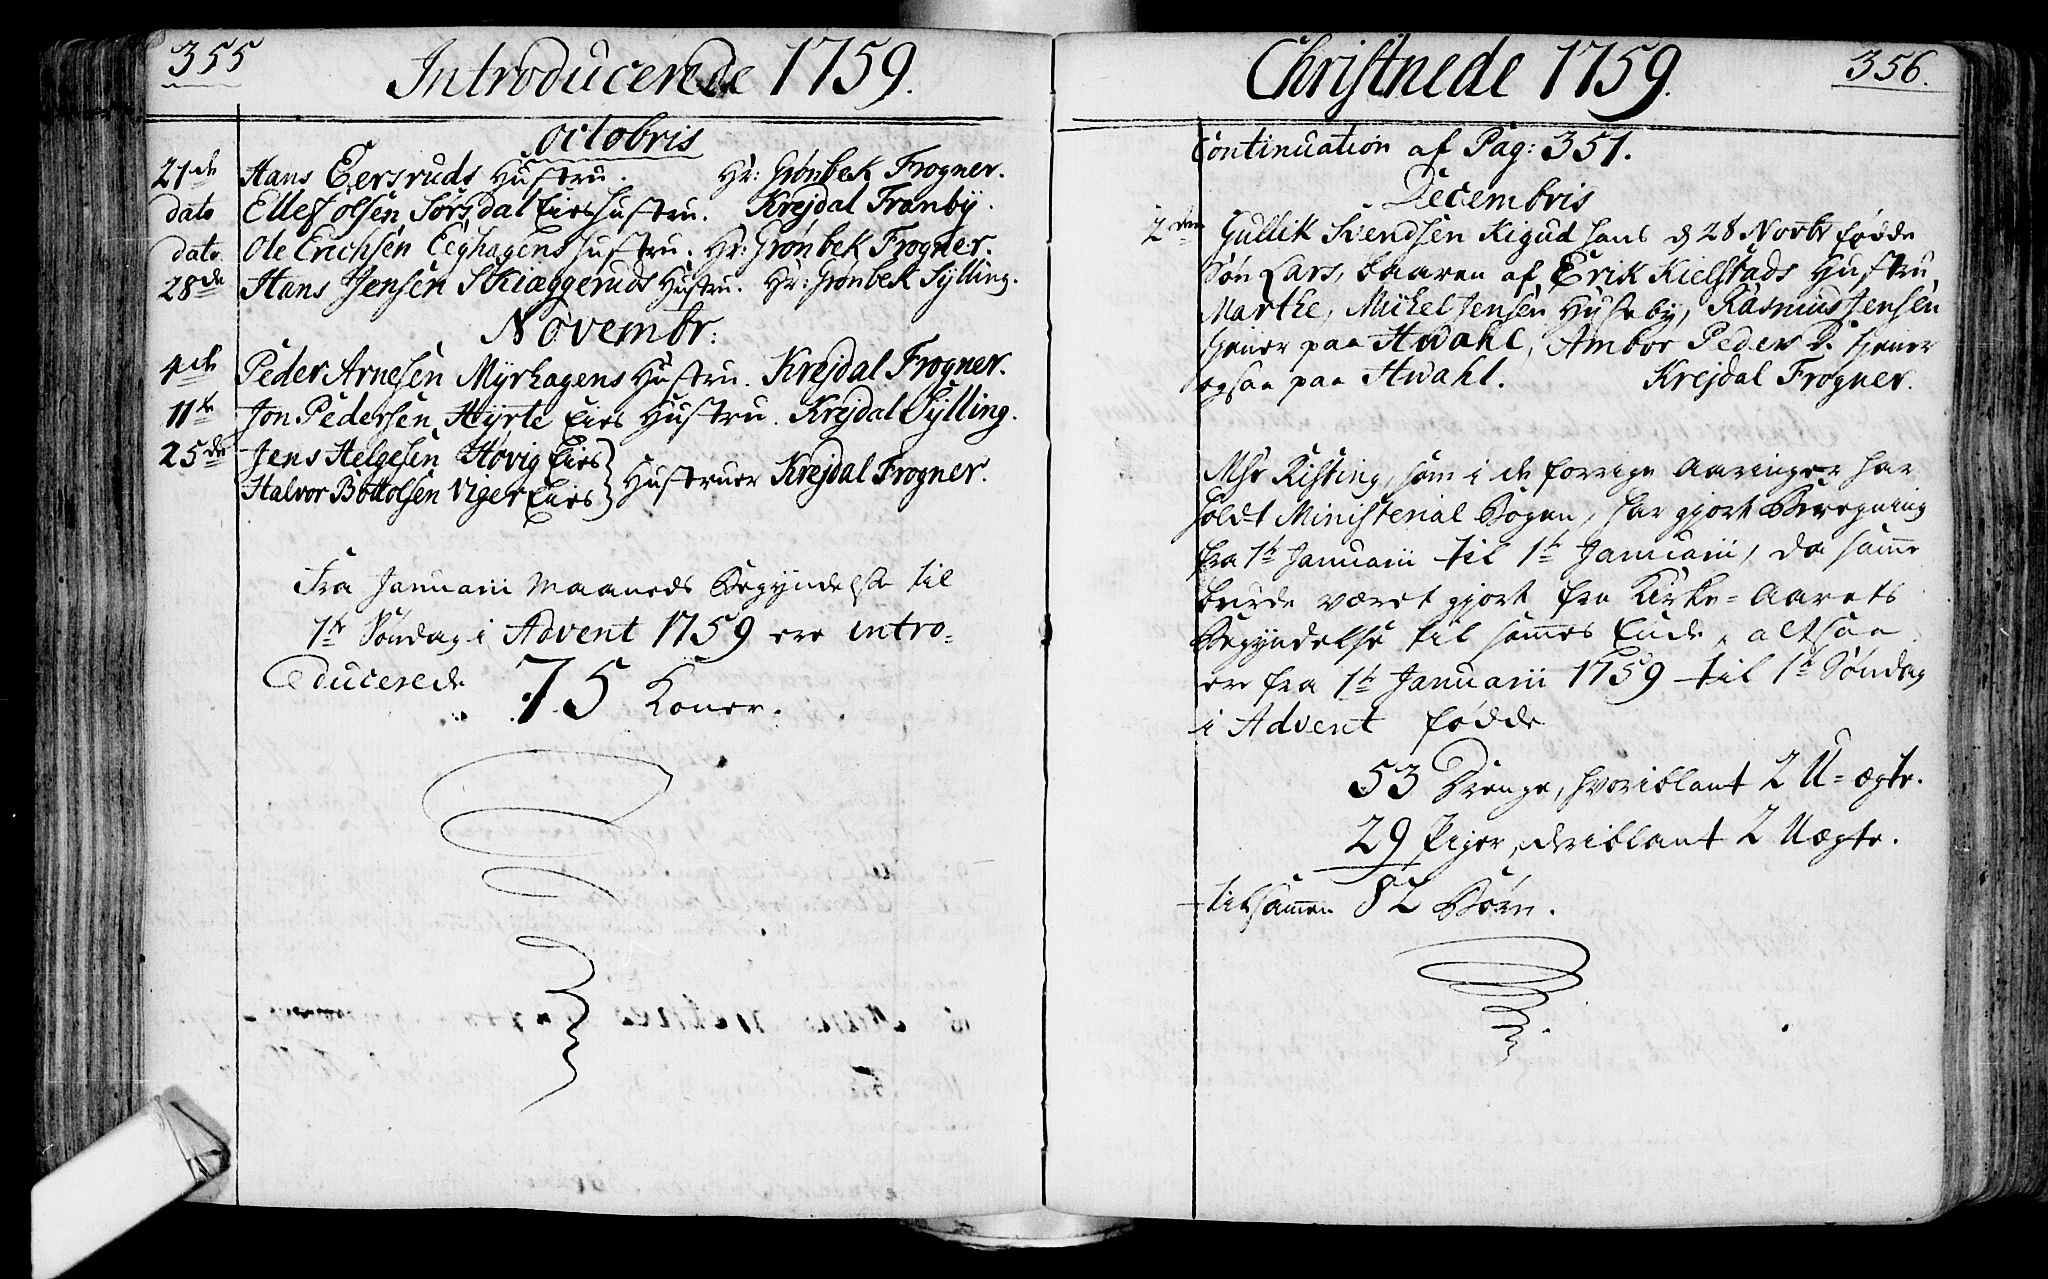 355
Introducerede 1759.
octobris
21de Hans Eersruds Hustru. Hr: Grønbek Frogner.
dato Ellef olsen Sørsdal Eies Hustru. Krejdal Tranby.
dato Ole Erichsen Eeghagens Hustru. Hr: Grønbek Frogner.
28de Hans Jensen Skiæggeruds Hustru. Hr: Grønbek Sylling.
Novembr:
4de Peder Arnesen Myrhagens Hustru. Krejdal Frogner.
11te Jon Pedersen Hyrte Eies Hustru. Krejdal Sylling.
25de Jens Helgesen Høvig Eies
Halvor Bottolsen Viger Eies } Hustruer Krejdal Frogner.
Fra Januarii Maaneds Begyndelse til
1te Søndag i Advent 1759 ere intro=
ducerede 75 Koner.
Christnede 1759.
356.
Continuation af Pag: 351.
Decembris
2den Gullik Svendsen Kigud hans d 28 Novbr fødde
Søn Lars, baaren af Erik Kielstads Hustru
Marthe, Mickel Jensen Huseby, Rasmus Jensen
tjener paa Hwahl, Ambor Peder D. tjener
ogsaa paa Hwahl. Krejdal Frogner.
Msr Risting, som i de forrige Aaringer har
holdt Ministerial Bogen, har gjort Beregning
fra 1te Januarii til 1te Januarii, da samme
burde været gjort fra Kirke=Aarets
Begyndelse til sammes Ende, altsaa
ere fra 1te Januarii 1759 til 1te Søndag
i Advent fødde
53 Drenge, hvoriblant 2 U=ægte.
29 Piger, deriblant 2 Uægte.
tilsammen 82 Børn.